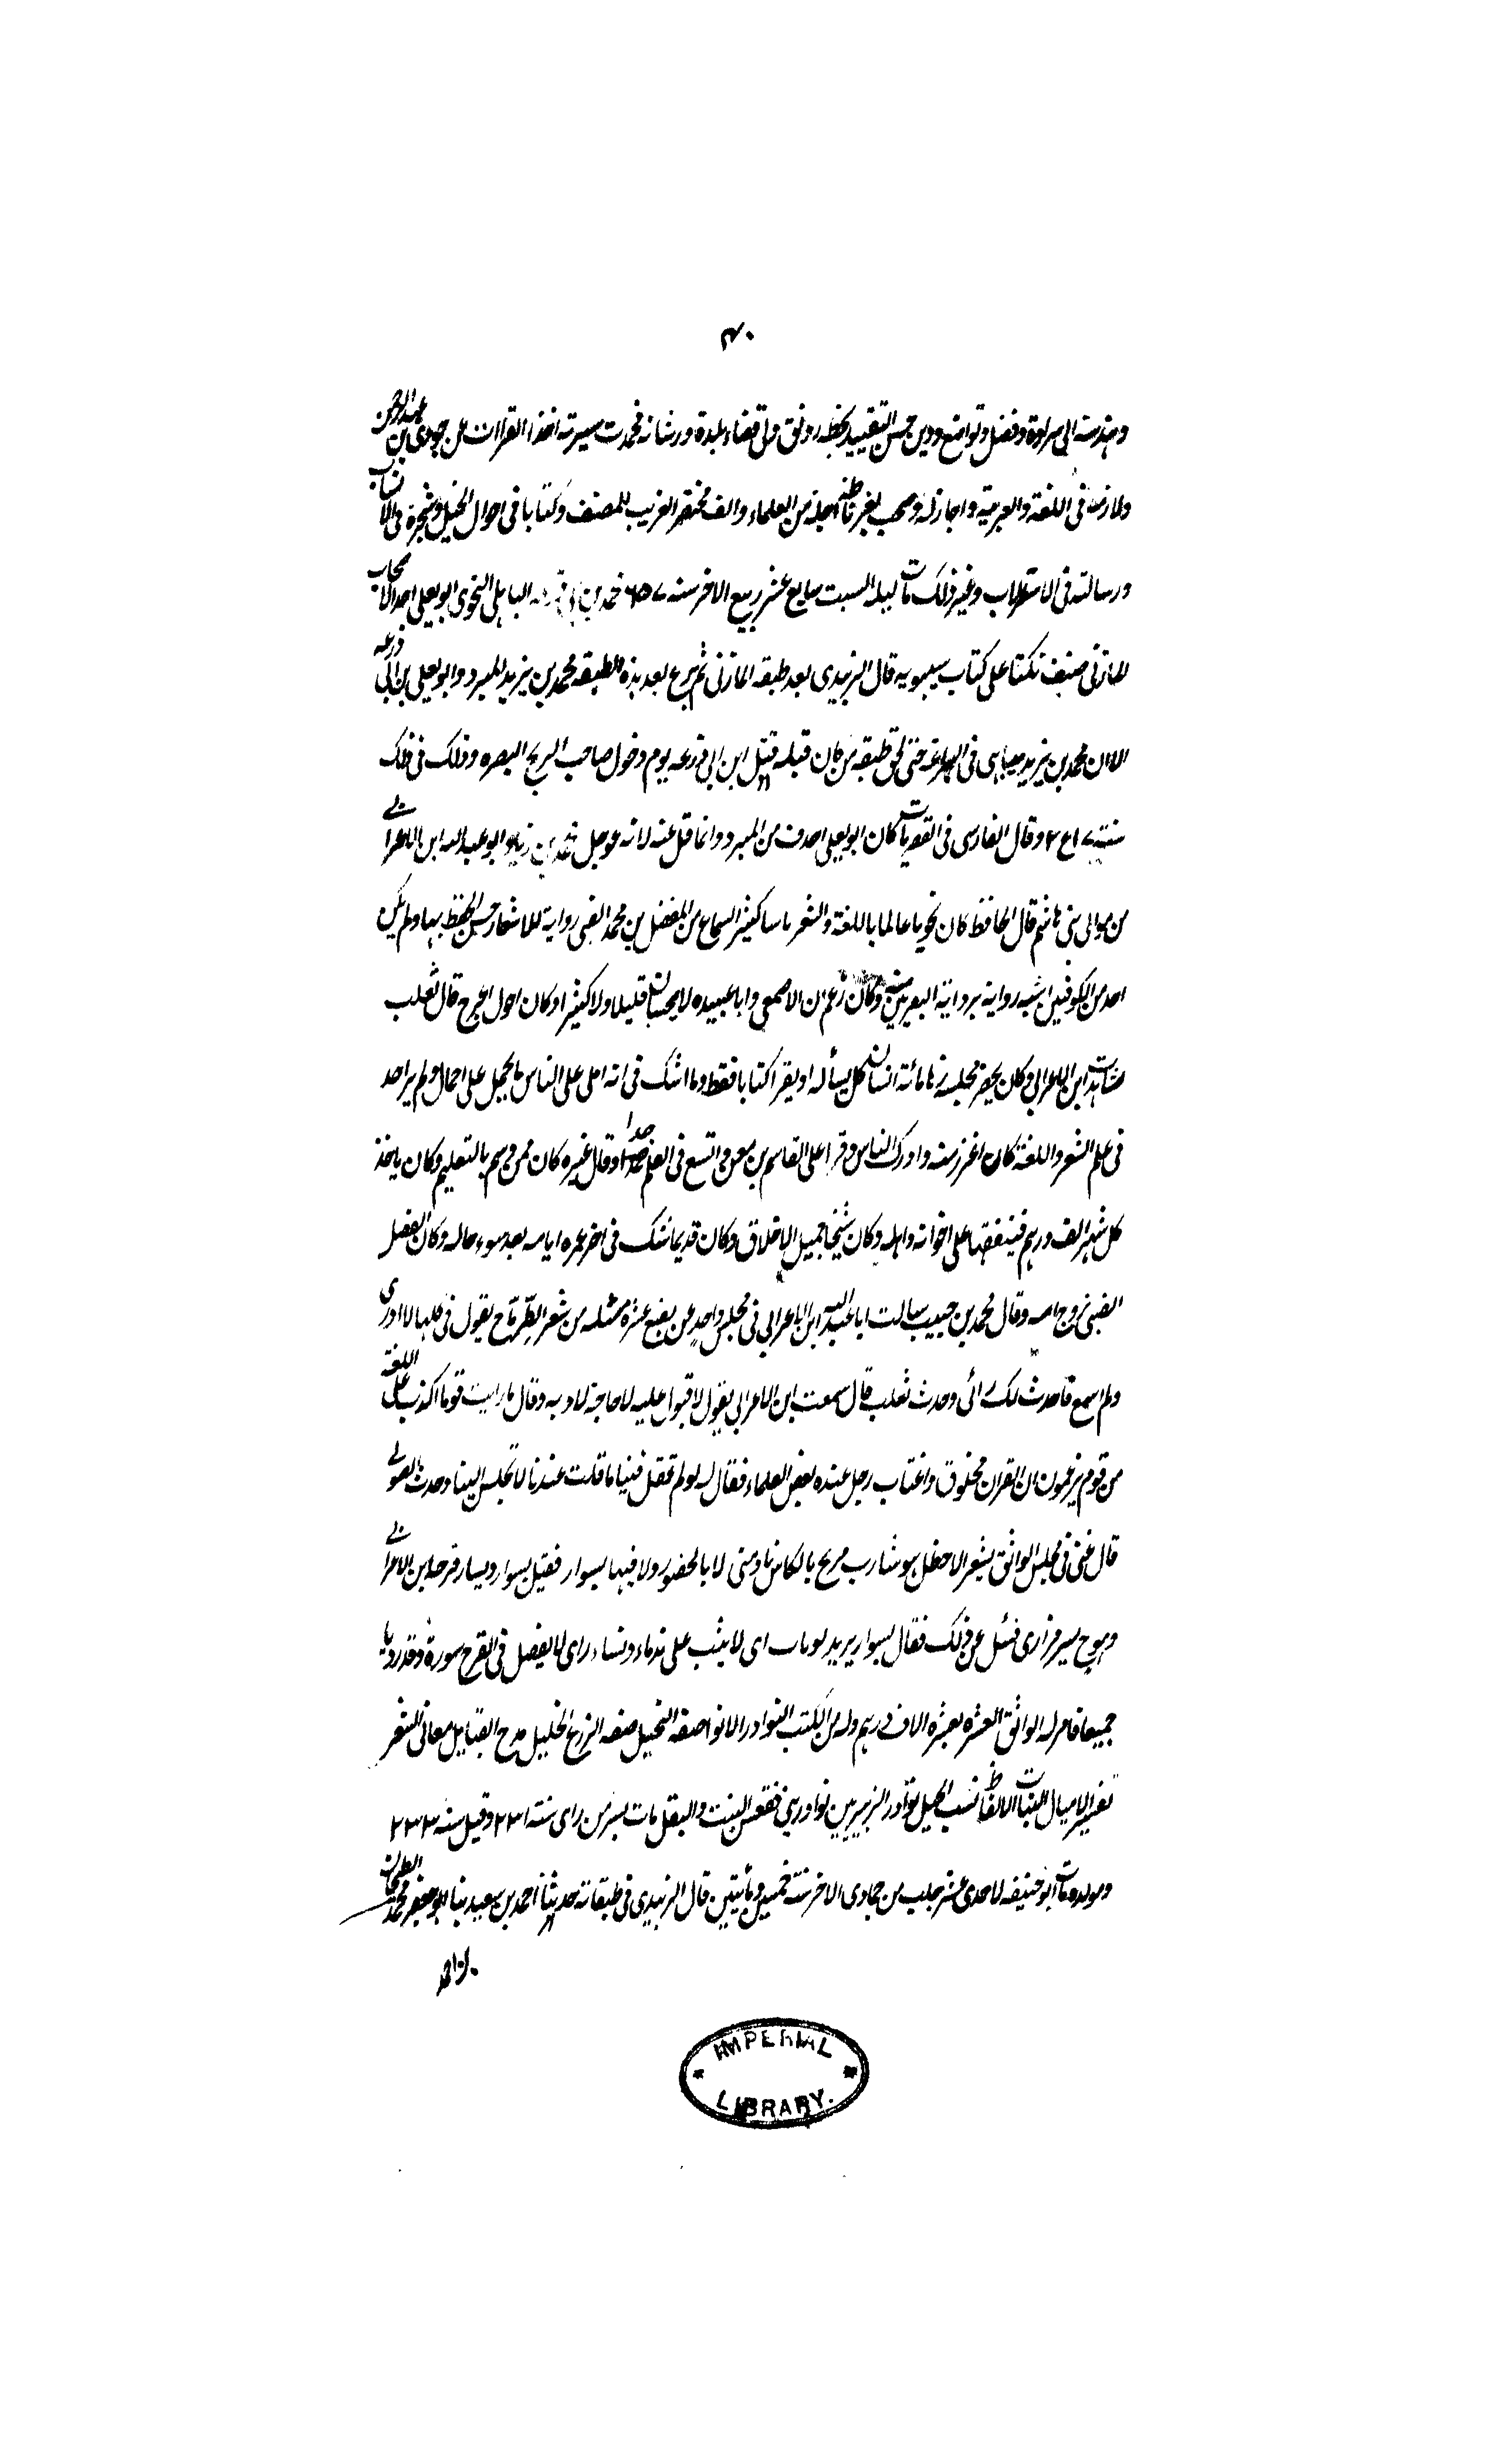 ٤٠
وهندسة الى سراوة وفضل وتواضع ودين حسن التقييد بخطه رونق ولى قضاء بلده ورشانة فحمدت سيرته اخذ القراات عن جودى بن عبد الرحمن
ولازمه فى اللغة والعربية واجاز له وصحب بغرناطة جلة من العلماء والف مختصر الغريب المصنف وكتابا فى احوال الخيل وشجرة فى الانساب
ورسالة فى الاسطرلاب وغير ذلك مات ليلة السبت سابع عشر ربيع الاخر سنه ٦٥٧ محمد بن ابى زرعه الباهلى النحوى ابو يعلى احد الاصحاب
المازنى صنف نكتا على كتاب سيبويه قال الزبيدى بعد طبقه المازنى ثم برع بعد هذه الطبقه محمد بن يزيد المبرد وابو يعلى بن ابى زرعه
الا ان محمد بن يزيد فى البراعة حتى لحق طبقه من كان قبله قتل ابن ابى زرعه يوم دخول صاحب الريح البصره وذلك فى ذلك
سنة وقال الفارسى فى القصريات كان ابو يعلى احذف من المبرد وانما قل عنه لانه عوجل محمد بن زياد ابو عبد الله ابن الاعرابى
من موالى بنى هاشم قال الحافظ كان نحويا عالما باللغة والشعر ناسبا كثير السماع من المفضل بن محمد الضبى رواية للاشعار حسن الحفظ بها ولم يكن
احد من الكوفيين اشبه رواية برواية البصريين منه وكان زعم ان الاصمعى وابا عبيده لا يحسنان قليلا ولا كثيرا وكان احول اعرج قال ثعلب
شاهدت ابن الاعرابى وكان يحضر مجلسه زها مائة انسان كل يسأله او يقرا كتابا فقط وما اشك فى انه املى على الناس ما يحمل على اجمال ولم ير احد
فى علم الشعر واللغة كان اغزر منه وادرك الناس وقرا على القاسم بن معن واتسع فى العلم جدا وقال غيره كان ممن وسم بالتعليم وكان ياخذ
كل شهر الف درهم فينفقها على اخوانه واهله وكان شيخا جميل الاخلاق وكان قديما تنسك فى اخر عمره ايامه بعد سوء حاله وكان المفضل
الضبى زوج امه وقال محمد بن حبيب سالت ابا عبد الله ابن الاعرابى فى مجلس واحد عن بضع عشرة مسئله من شعر الطرماح يقول فى كلها لا ادرى
ولم اسمع فاحدث لك رائى وحدث ثعلب قال سمعت ابن الاعرابى يقول لا عليه لا حاجة لا وبه وقال ما رايت قوما اكذب على اللغة
من قوم يزعمون ان القران مخلوق واغتاب رجل عنده بعض العلماء فقال له لو لم تقل فينا ما قلت عندنا لا تجلس الينا وحدث الصولى
قال غنى فى مجلس الواثق بشعر الاخطل وشارب مريح بالكاس نادمنى لا بالحضور ولا فيها بسوار فقيل بسوار وبسار فوجه ابن الاعرابى
وهو بسر من راى فسئل عن ذلك فقال بسوار يريد بوثاب اى لا يثب على ندماء وبساء راى لا يفضل فى القدح سورة وقد رويا
جميعا فامر له الواثق العشره بعشره الاف درهم وله من الكتب النوادر الانوا صفه النخيل صفه الزرع الخيل مدح القبايل معانى الشعر
تفسير الامثال النبات الالفاظ نسب الخيل نوادر الزبيريين نوادر بنى فقعس النبت والبقل مات بسر من راى سنة ٢٣١ وقيل سنه ٢٣٣
ومولده مات ابو حنيفه لاحدى عشر خلت من جمادى الاخر سنة خمسين ومائتين قال الزبيدى فى طبقاته حدثنا احمد بن سعيد بنا ابو جعفر محمد الطحان
IMPERIAL
LIBRARY.